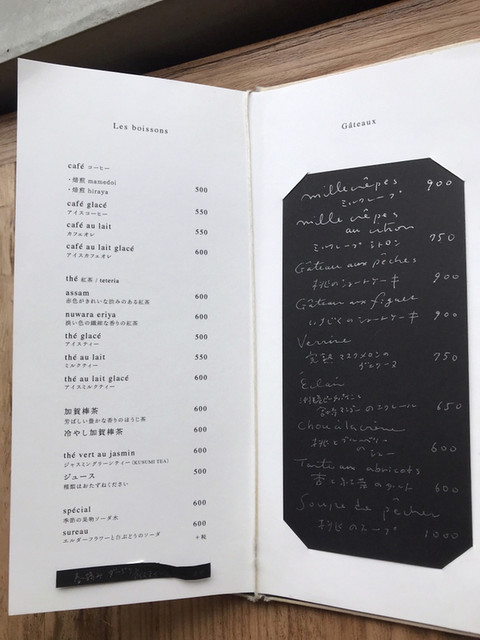 Les boissons
café コーヒー
・焙煎 mamedoi
・焙煎 hiraya 500
café glacé 550
アイスコーヒー
café au lait 550
カフェオレ
café au lait glacé 600
アイスカフェオレ
thé 紅茶 / teteria
assam 600
赤色がきれいな渋みのある紅茶
nuwara eriya 600
淡い色の繊細な香りの紅茶
thé glacé 500
アイスティー
thé au lait 550
ミルクティー
thé au lait glacé 600
アイスミルクティー
加賀棒茶 600
芳ばしい豊かな香りのほうじ茶
冷やし加賀棒茶 600
thé vert au jasmin 600
ジャスミングリーンティー (KUSUMI TEA)
ジュース 500
種類はおたずねください
spécial 600
季節の果物ソーダ水
sureau 600
エルダーフラワーと白ぶどうのソーダ
Gâteaux
millecrêpes 900
ミルクレープ
mille crêpes
au citron
ミルクレープ シトロン 750
Gâteau aux pêches
桃のショートケーキ 900
Gâteau aux figues
いちじくのショートケーキ 900
Verrine
完熟マスクメロンの 750
ヴェリーヌ
Éclair
のエクレール 650
Chou à la crème
桃とブルーベリー
のシュー 600
Tarte aux abricots
杏と のタルト 600
Soupe de pêcher
桃のスープ 1000